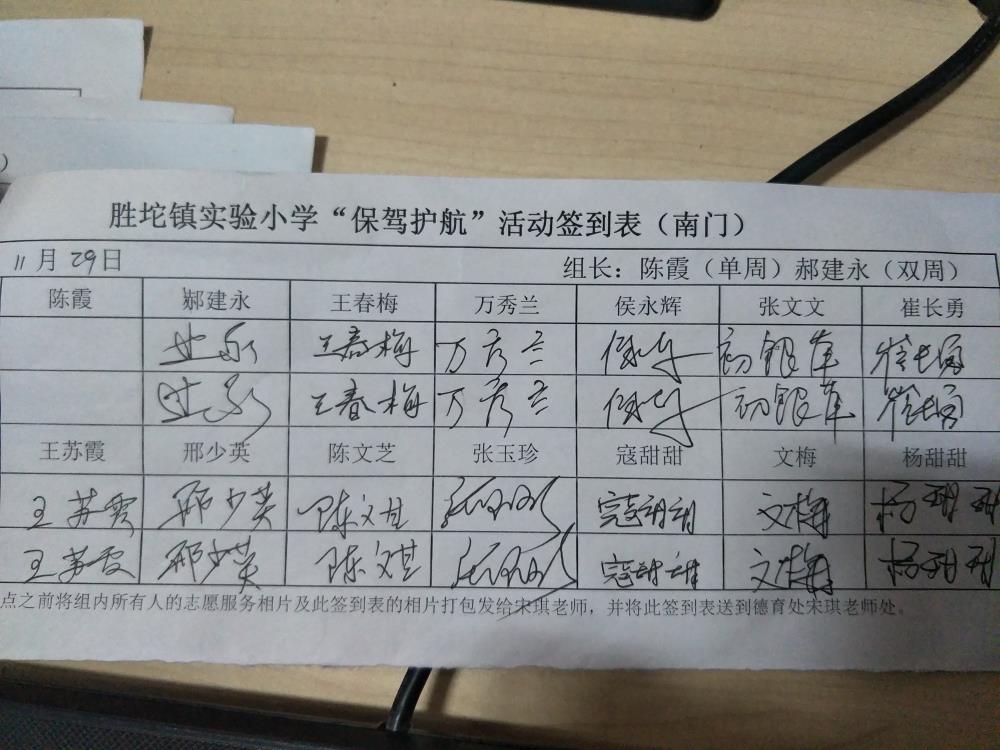 ）
胜坨镇实验小学“保驾护航”活动签到表（南门）
11月29日 组长：陈霞（单周）郝建永（双周）
陈霞 郝建永 王春梅 万秀兰 侯永辉 张文文 崔长勇
王春梅 万秀兰 初银萍
王春梅 万秀兰 初银萍
王苏霞 邢少英 陈文芝 张玉珍 寇甜甜 文梅 杨甜甜
王苏霞 邢少英 陈文芝 寇甜甜 文梅 杨甜甜
王苏霞 邢少英 陈文芝 寇甜甜 文梅 杨甜甜
点之前将组内所有人的志愿服务相片及此签到表的相片打包发给宋琪老师，并将此签到表送到德育处宋琪老师处。